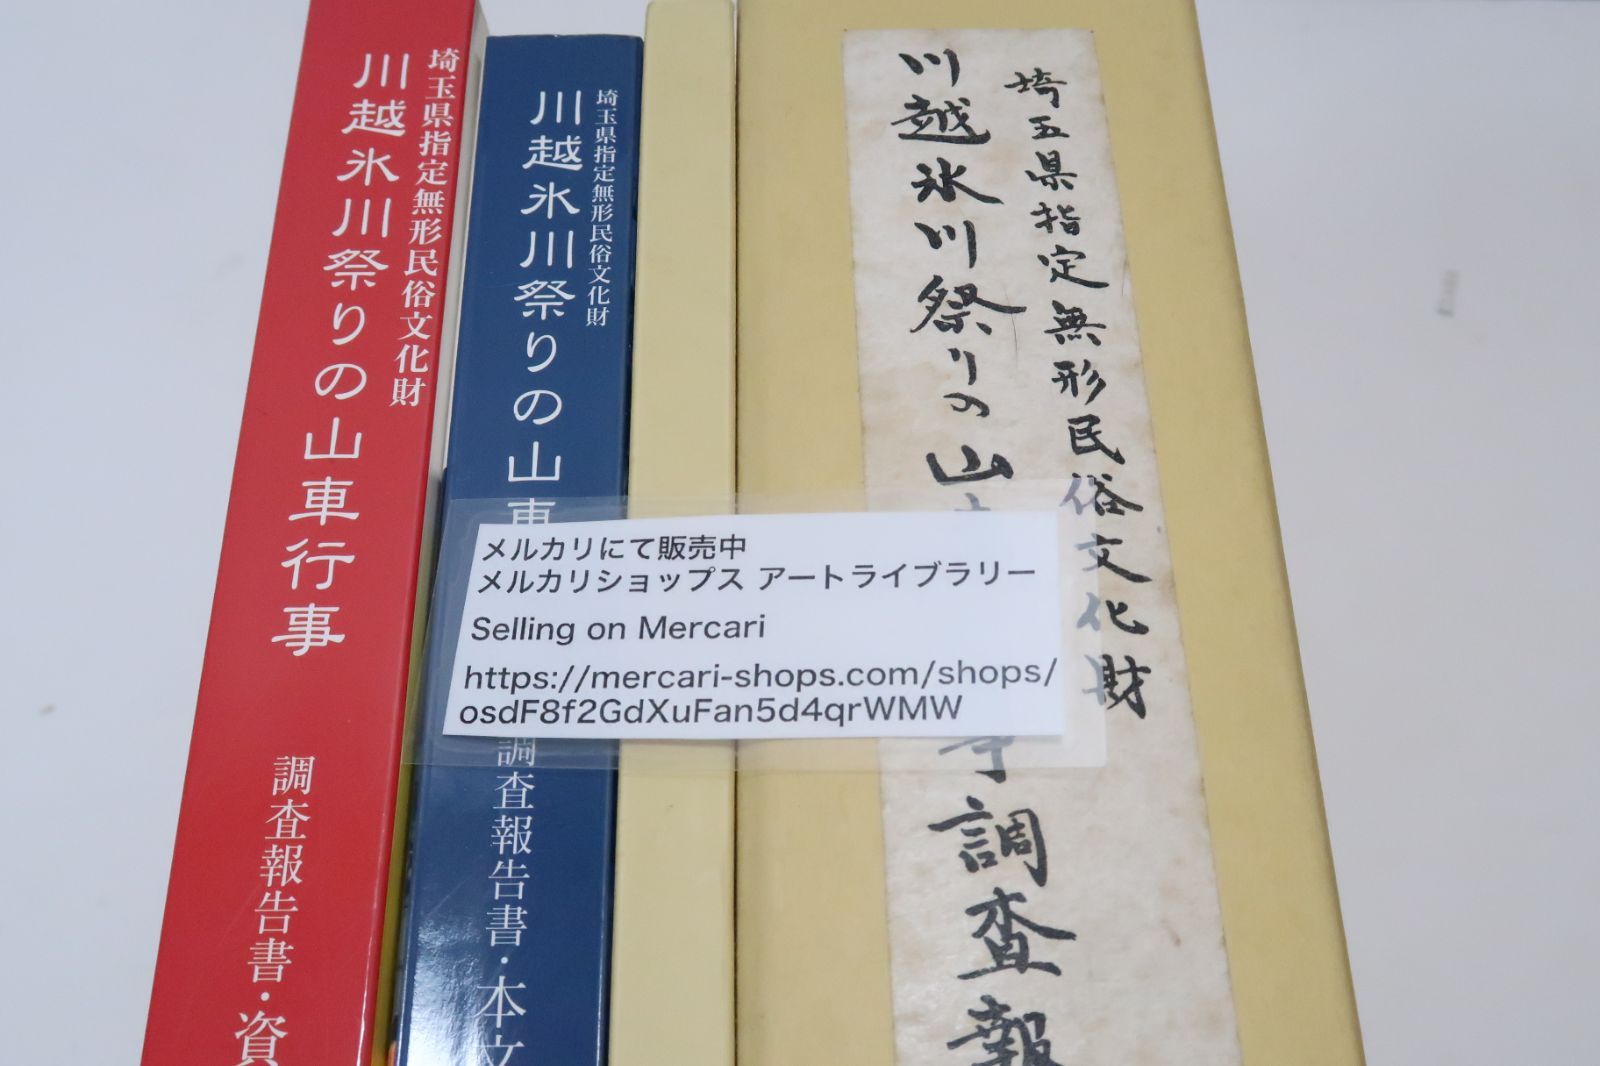 埼玉県指定無形民俗文化財
川越氷川祭りの山車行事
調査報告書・資
埼玉県指定無形民俗文化財
川越氷川祭りの山車
調査報告書・本文
埼玉県指定無形民俗文化財
川越氷川祭りの山車
事調査報
メルカリにて販売中
メルカリショップス アートライブラリー
Selling on Mercari
https://mercari-shops.com/shops/
osdF8f2GdXuFan5d4qrWMW